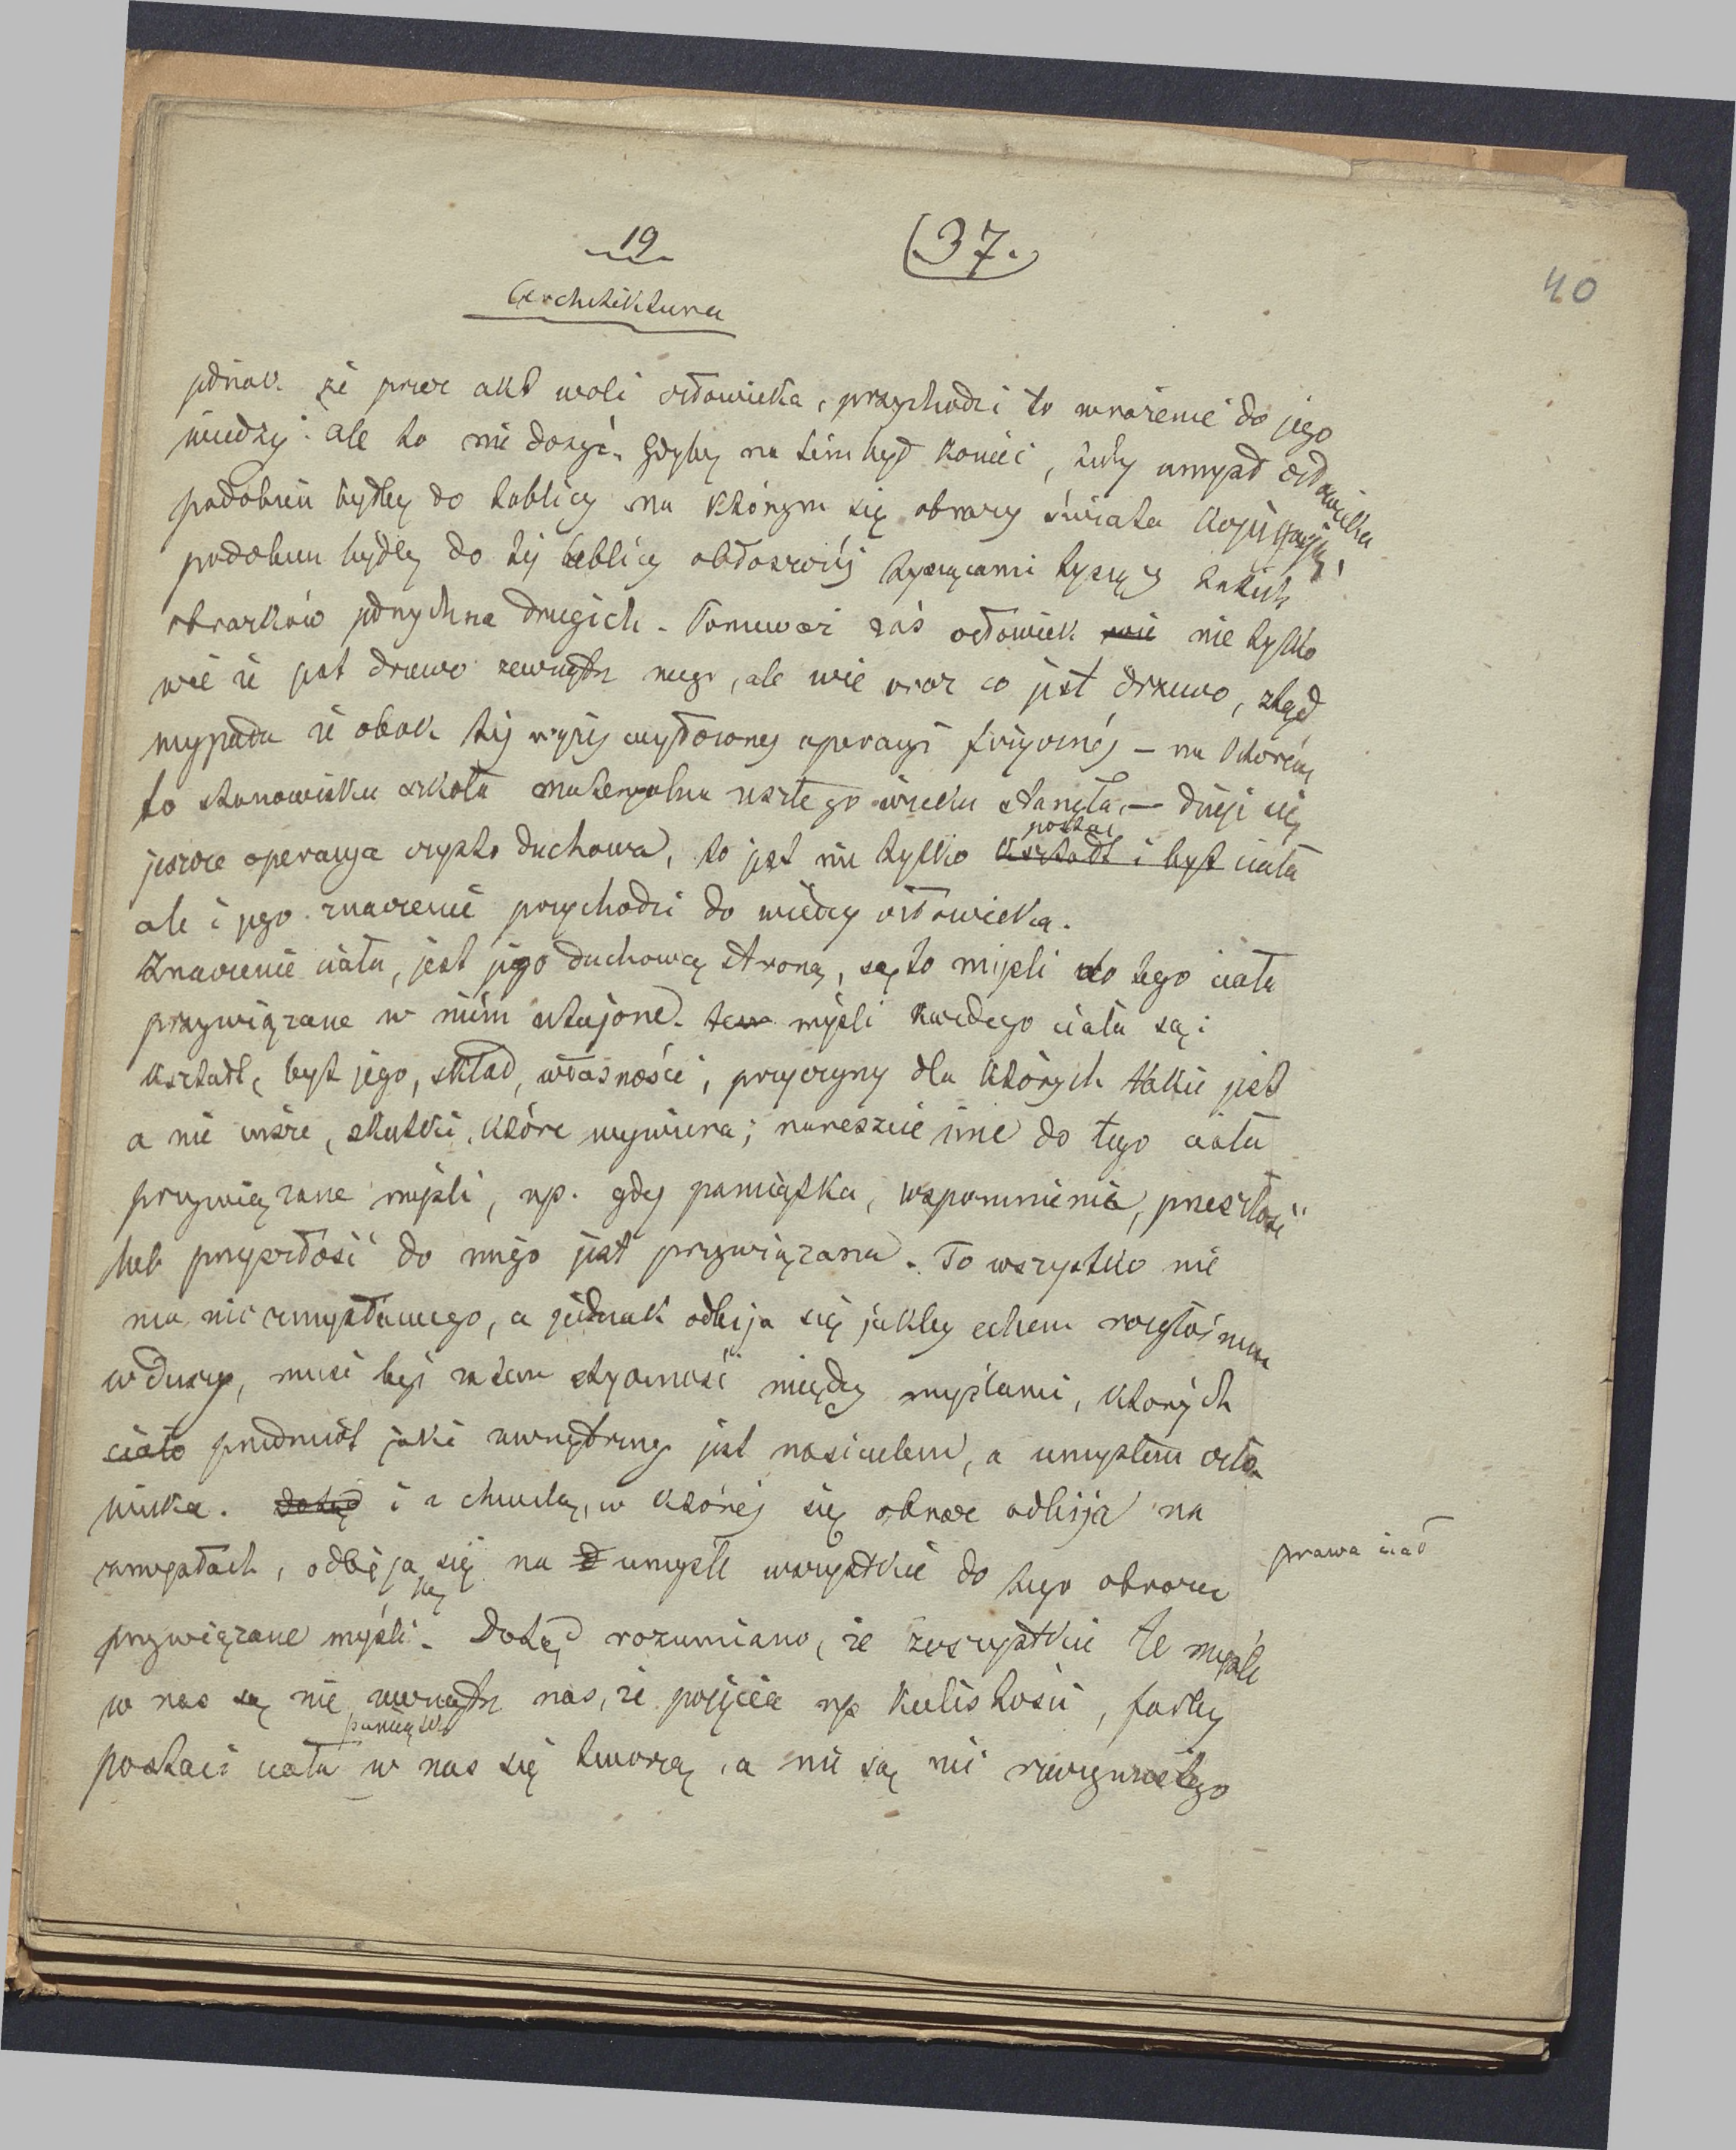 19
(37.)
40
Architektura
jednak że przez akt woli człowieka, przychodzi to wrażenie do jego
wiedzy: ale to nie dosyć. Gdyby na tém był koniec, żeby umysł człowieka
podobien byłby do tablicy na którym się obrazy świata
podobien byłby do téj tablicy tysiącami tysięcy takich
obrazków jednych na drugich. Ponieważ zaś człowiek wie nie tylko
wie że jest drzewo zewnątrz niego, ale wie oraz co jest drzewo, ztąd
wypada że obok téj wyżéj operacyi fizycznéj – na którém
to stanowisku szkoła materyalna zeszłego wieku stanęła, – dzieje się
jeszcze operacya czysto duchowa, to jest nie tylko kształt i byt ciała
postać
ale i jego znaczenie przychodzi do wiedzy człowieka.
Znaczenie ciała, jest jego duchową stroną, są to myśli do tego ciała
przywiązane w niém utajone. myśli każdego ciała są:
kształt, byt jego, skład, własności, przyczyny dla których takie jest
a nie insze, skutki, które wywiera; nareszcie inne do tego ciała
przywiązane myśli, np. gdy pamiątka, wspomnienie, przeszłość
lub przyszłość do niego jest przywiązana. To wszystko nie
ma nic zmysłowego, a jednak odbija się jakby echem rozgłośnem
w duszy, musi być zatem styczność między myślami, których
ciało przedmiot jaki zewnętrzny jest nosicielem, a umysłem czło-
wieka. Dotąd i z chwilą, w któréj się obraz odbija na
zmysłach, odbijają się na umyśle wszystkie do tego obrazu
prawa ciał
przywiązane myśli. Dotąd rozumiano, że wszystkie te myśli
w nas są nie zewnątrz nas, że pojęcie np kulistości, farby
pamiątki
postaci ciała w nas się tworzą, a nie są nic rzeczywistego